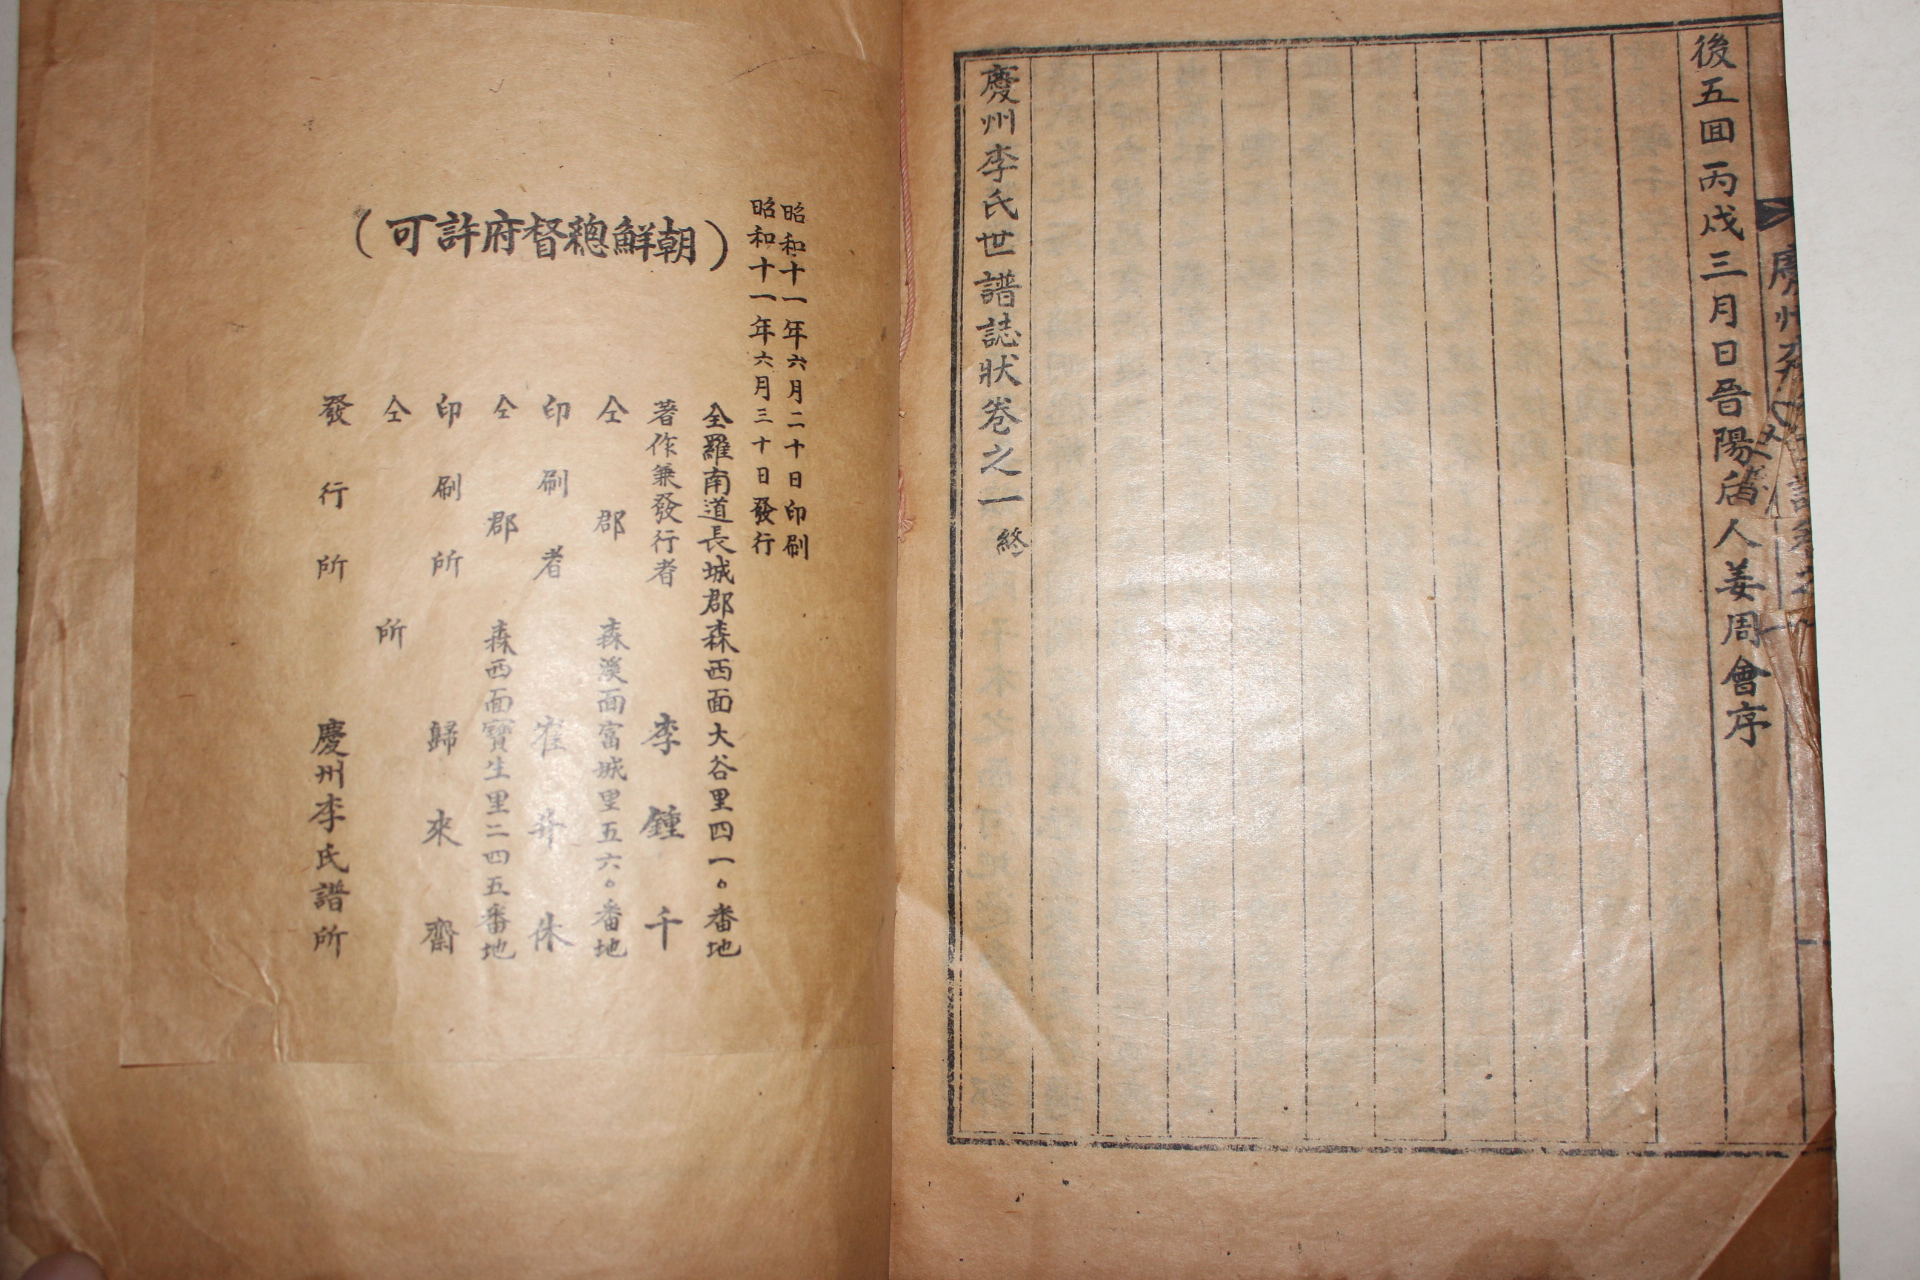 後五回丙戌三月日晋陽后人姜周會序
慶州李氏世譜誌狀卷之一 終
昭和十一年六月二十日印刷
昭和十一年六月三十日發行
（朝鮮總督府許可）
全羅南道長城郡森西面大谷里四一〇番地
著作兼發行者 李鍾千
仝郡 森溪面富城里五六〇番地
印刷者 崔 休
仝郡 森西面寶生里二四五番地
印刷所 歸來齋
仝所
發行所 慶州李氏譜所